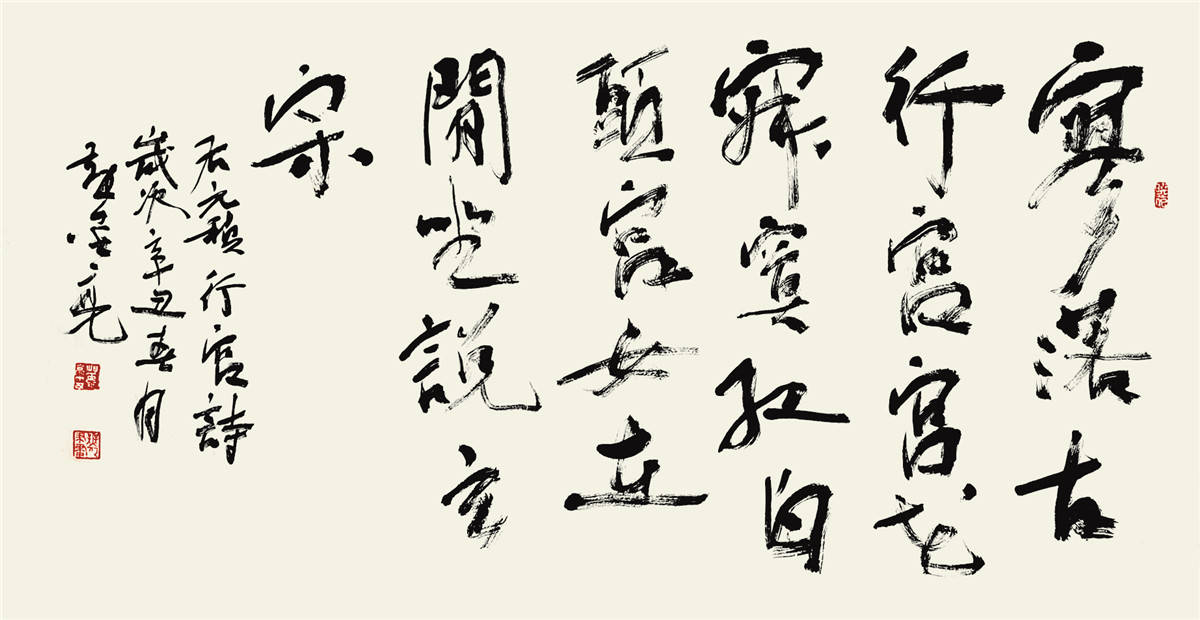 寥落古
行宮宮花
寂寞紅白
頭宮女在
閒坐說玄
宗
右元稹行宮詩
歲次辛丑春月